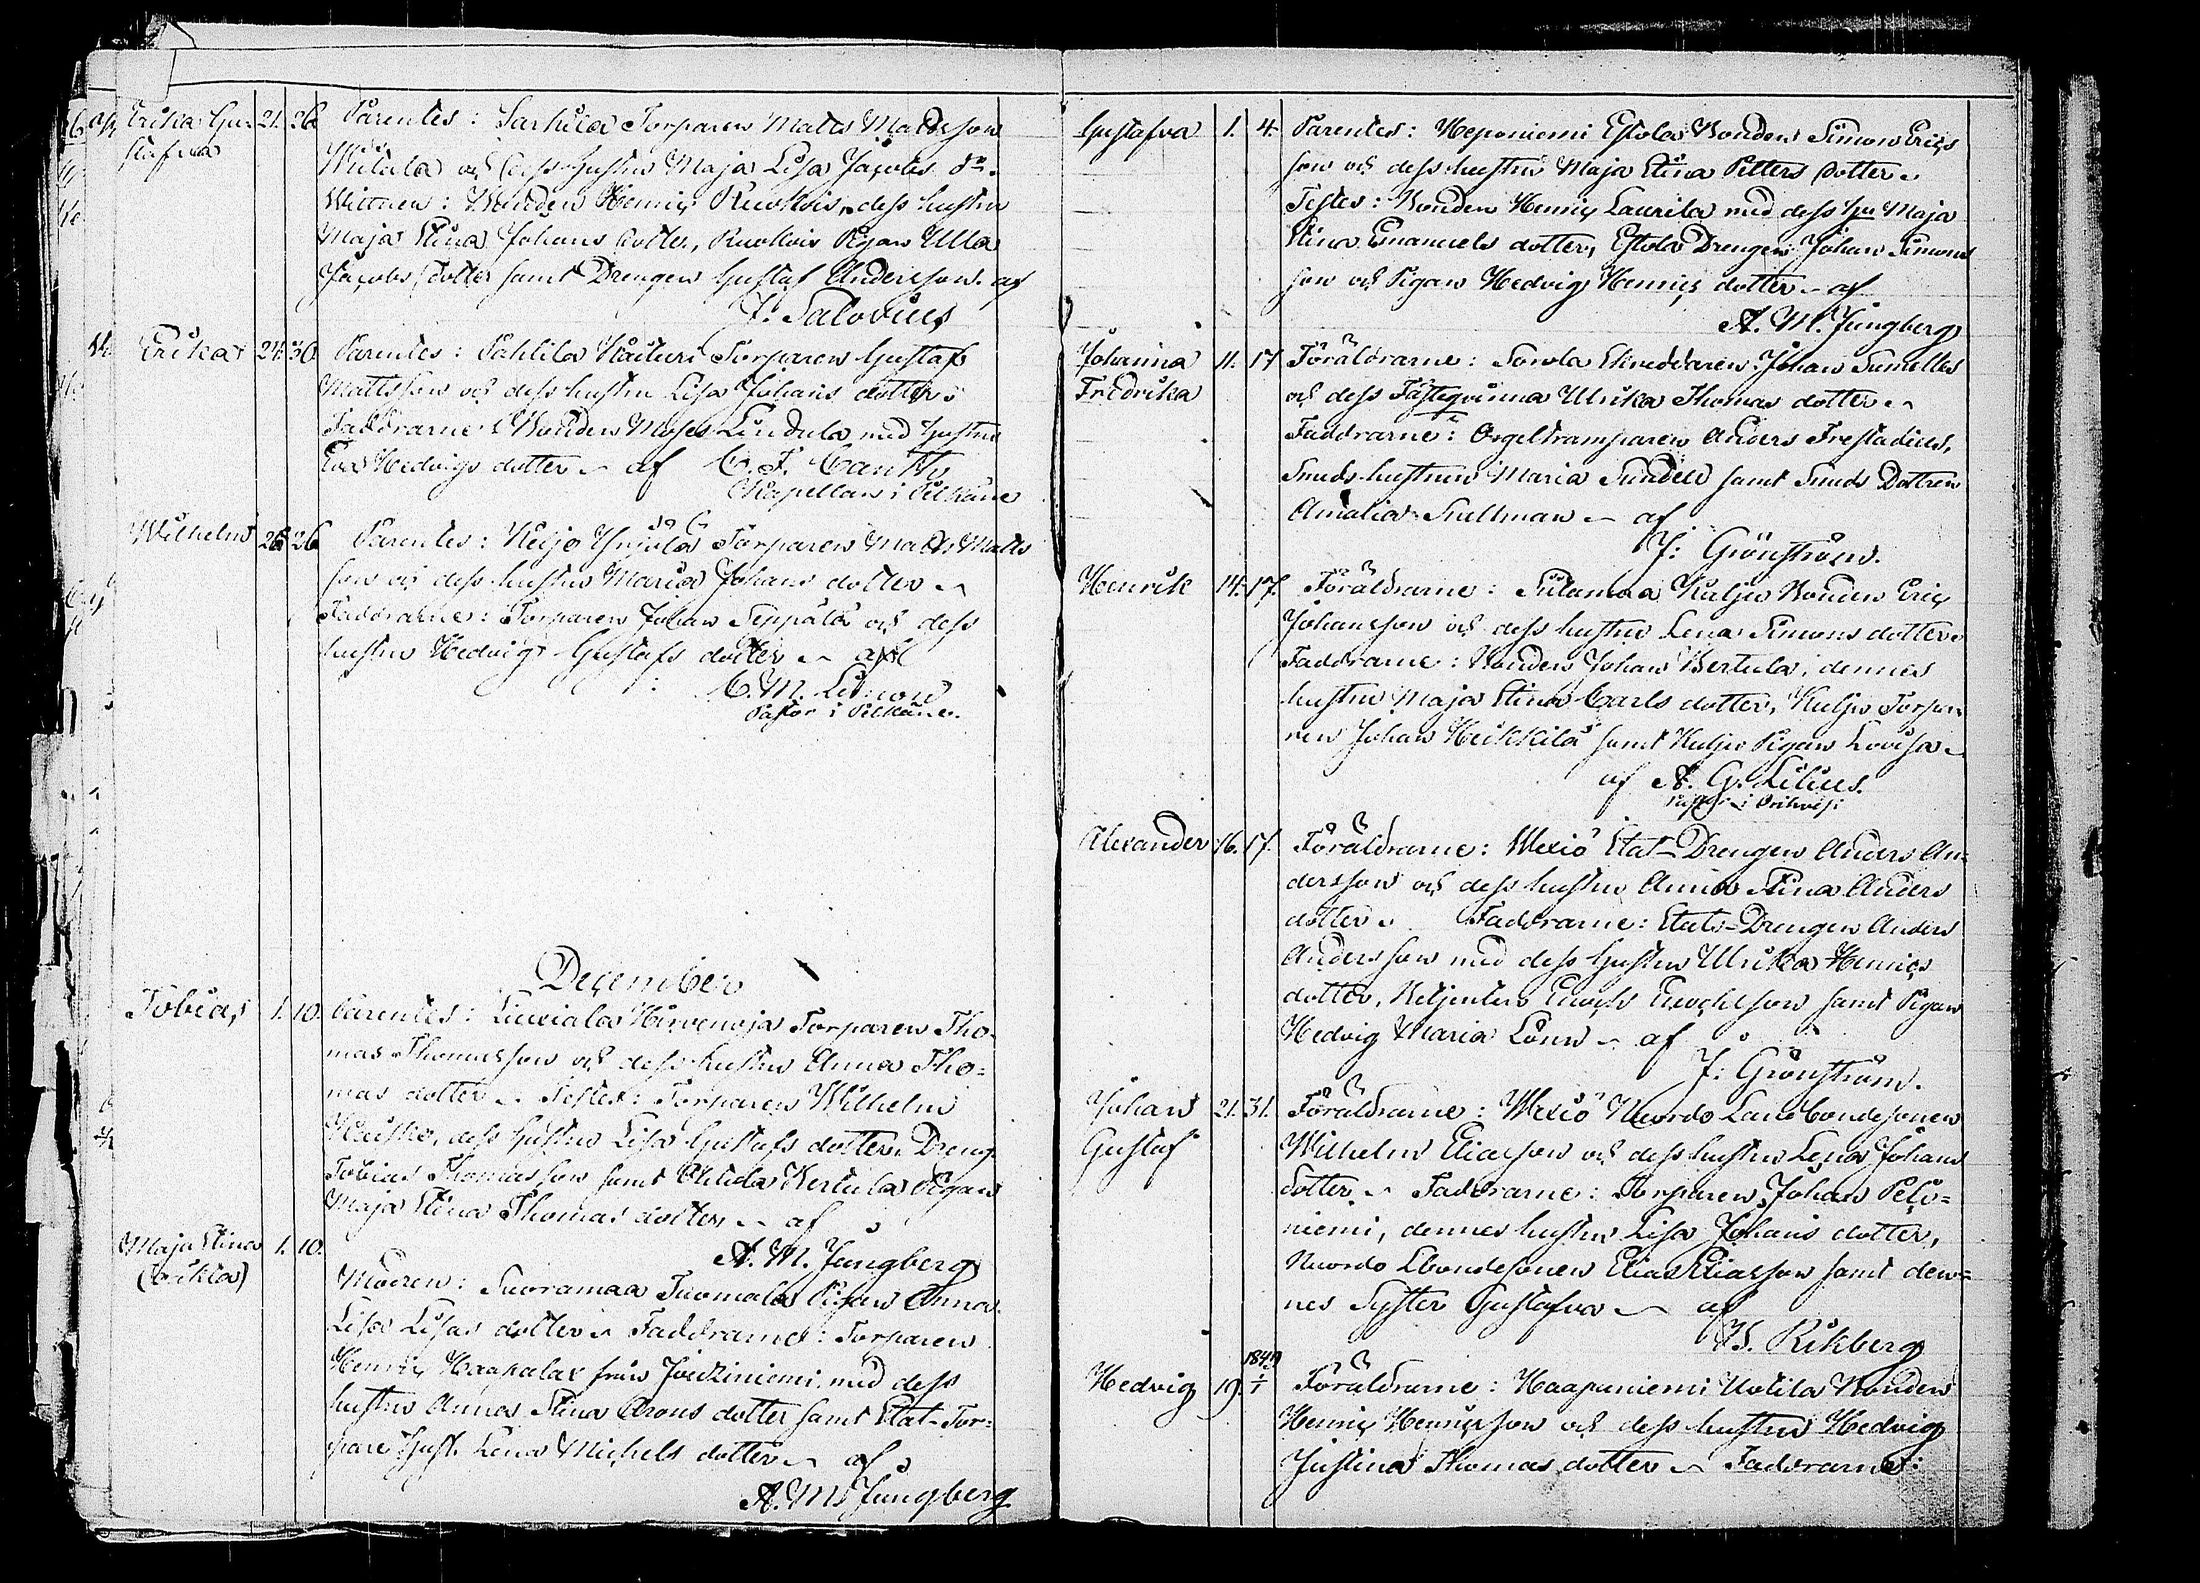 Erika Gu= 21. 26 Parentes: Sarkila Torparen Matts Mattsson
stafva
och dess Hustru Maja Lisa Jacobs dr.
Wittnen: Bonden Henric Ruokois, dess hustru
Maja Stina Johans dotter, Ruokois Pigan Ulla
Jacobs dotter samt Drengen Gustaf Andersson. af
J. Salovius
Erika 24. 30 Parentes: Torparen Gustaf
Mattsson och dess hustru Lisa Johans dotter
Faddrarne: Bonden Moses Lindula med hustru
Eva Hedvigs dotter af C. F. Canth
Kapellan i Pelkäne
Wilhelm 26 26 Parentes: Torparen Matts Matts
son och dess hustru Maria Johans dotter
Faddrarne: Torparen Johan Seppälä och dess
hustru Hedvig Gustafs dotter af
C. M.
Pastor i Pelkäne.
December
Tobias 1. 10. Parentes: Liuxiala Hirvenoja Torparen Tho=
mas Thomasson och dess hustru Anna Tho=
mas dotter Testes: Torparen Wilhelm
dess hustru Lisa Gustafs dotter, Dreng
Tobias Thomasson samt Kertula Pigan
Maja Stina Thomas dotter af
A. M. Jungberg
Maja Stina 1. 10.
Modren: Suoramaa Tuomala Pigan Anna
Lisa Lisas dotter Faddrarne: Torparen
Henric från med dess
hustru Anna Stina Arons dotter samt Stat-Tor=
pare Hust. Lena Michels dotter af
A. M. Jungberg
Gustafva 1. 4. Parentes: Heponiemi Eskola Bonden Simon Erics
son och dess hustru Maja Stina Petters dotter
Testes: Bonden Henric Laurila med dess hu Maja
Stina Emanuels dotter, Eskola Drengen Johan Simons
son och Pigan Hedvig Henrics dotter af
A. M. Jungberg
Johanna 11. 17 Föräldrarne: Sorola Skreddaren Johan
Fredrika och dess Fästeqvinna Ulrika Thomas dotter
Faddrarne: Orgeltramparen Anders Frestadius,
Smeds hustrun Maria Sundell samt Smeds Dottren
Amalia Snellman af
J: Grönström.
Henrik 14. 17. Föräldrarne: Kuljo Bonden Eric
Johansson och dess hustru Lena Simons dotter
Faddrarne: Bonden Johan Kertula, dennes
hustru Maja Stina Carls dotter, Kuljo Torpa=
ren Johan Heikkilä samt Kuljo Pigan Lovisa
af A. G. Lilius.
Pastor i Orihvesi
Alexander 16. 17. Föräldrarne: Wexiö Stat-Drengen Anders An=
dersson och dess hustru Anna Stina Anders
dotter Faddrarne: Stats-Drengen Anders
Andersson med dess hustru Ulrika Henrics
dotter, Enoch Enochsson samt Pigan
Hedvig Maria Lönn af
J: Grönström.
Johan 21. 31. Föräldrarne: Wexiö Nuordo Landbondesonen
Gustaf Wilhelm Eliasson och dess hustru Lena Johans
dotter Faddrarne: Torparen Johan Pelo=
niemi, dennes hustru Lisa Johans dotter,
Nuordo Lbondesonen Elias Eliasson samt den=
nes Syster Gustafva af
Rikberg
1849
Hedvig 19. 1/1 Föräldrarne: Haapaniemi Uotila Bonden
Henric Henricsson och dess hustru Hedvig
Justina Thomas dotter Faddrarne: